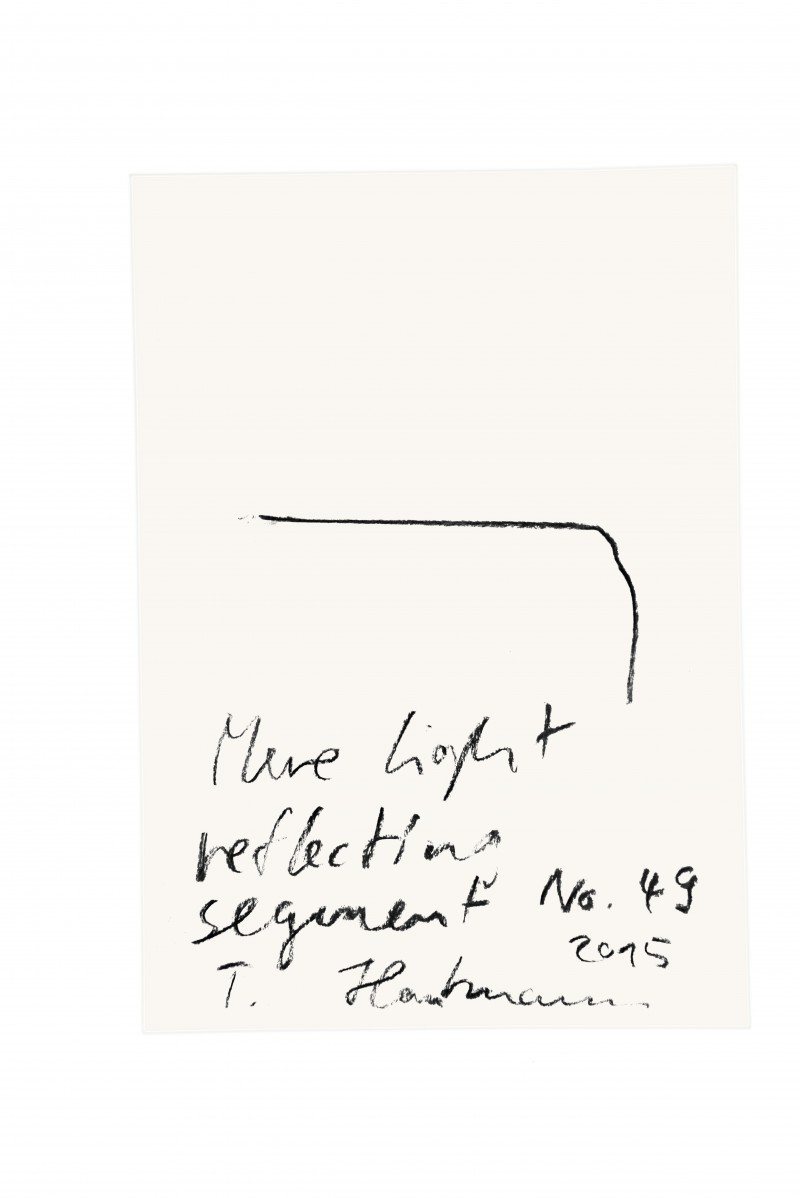 More light
reflecting
segment No. 49
2015
T. Hartmann